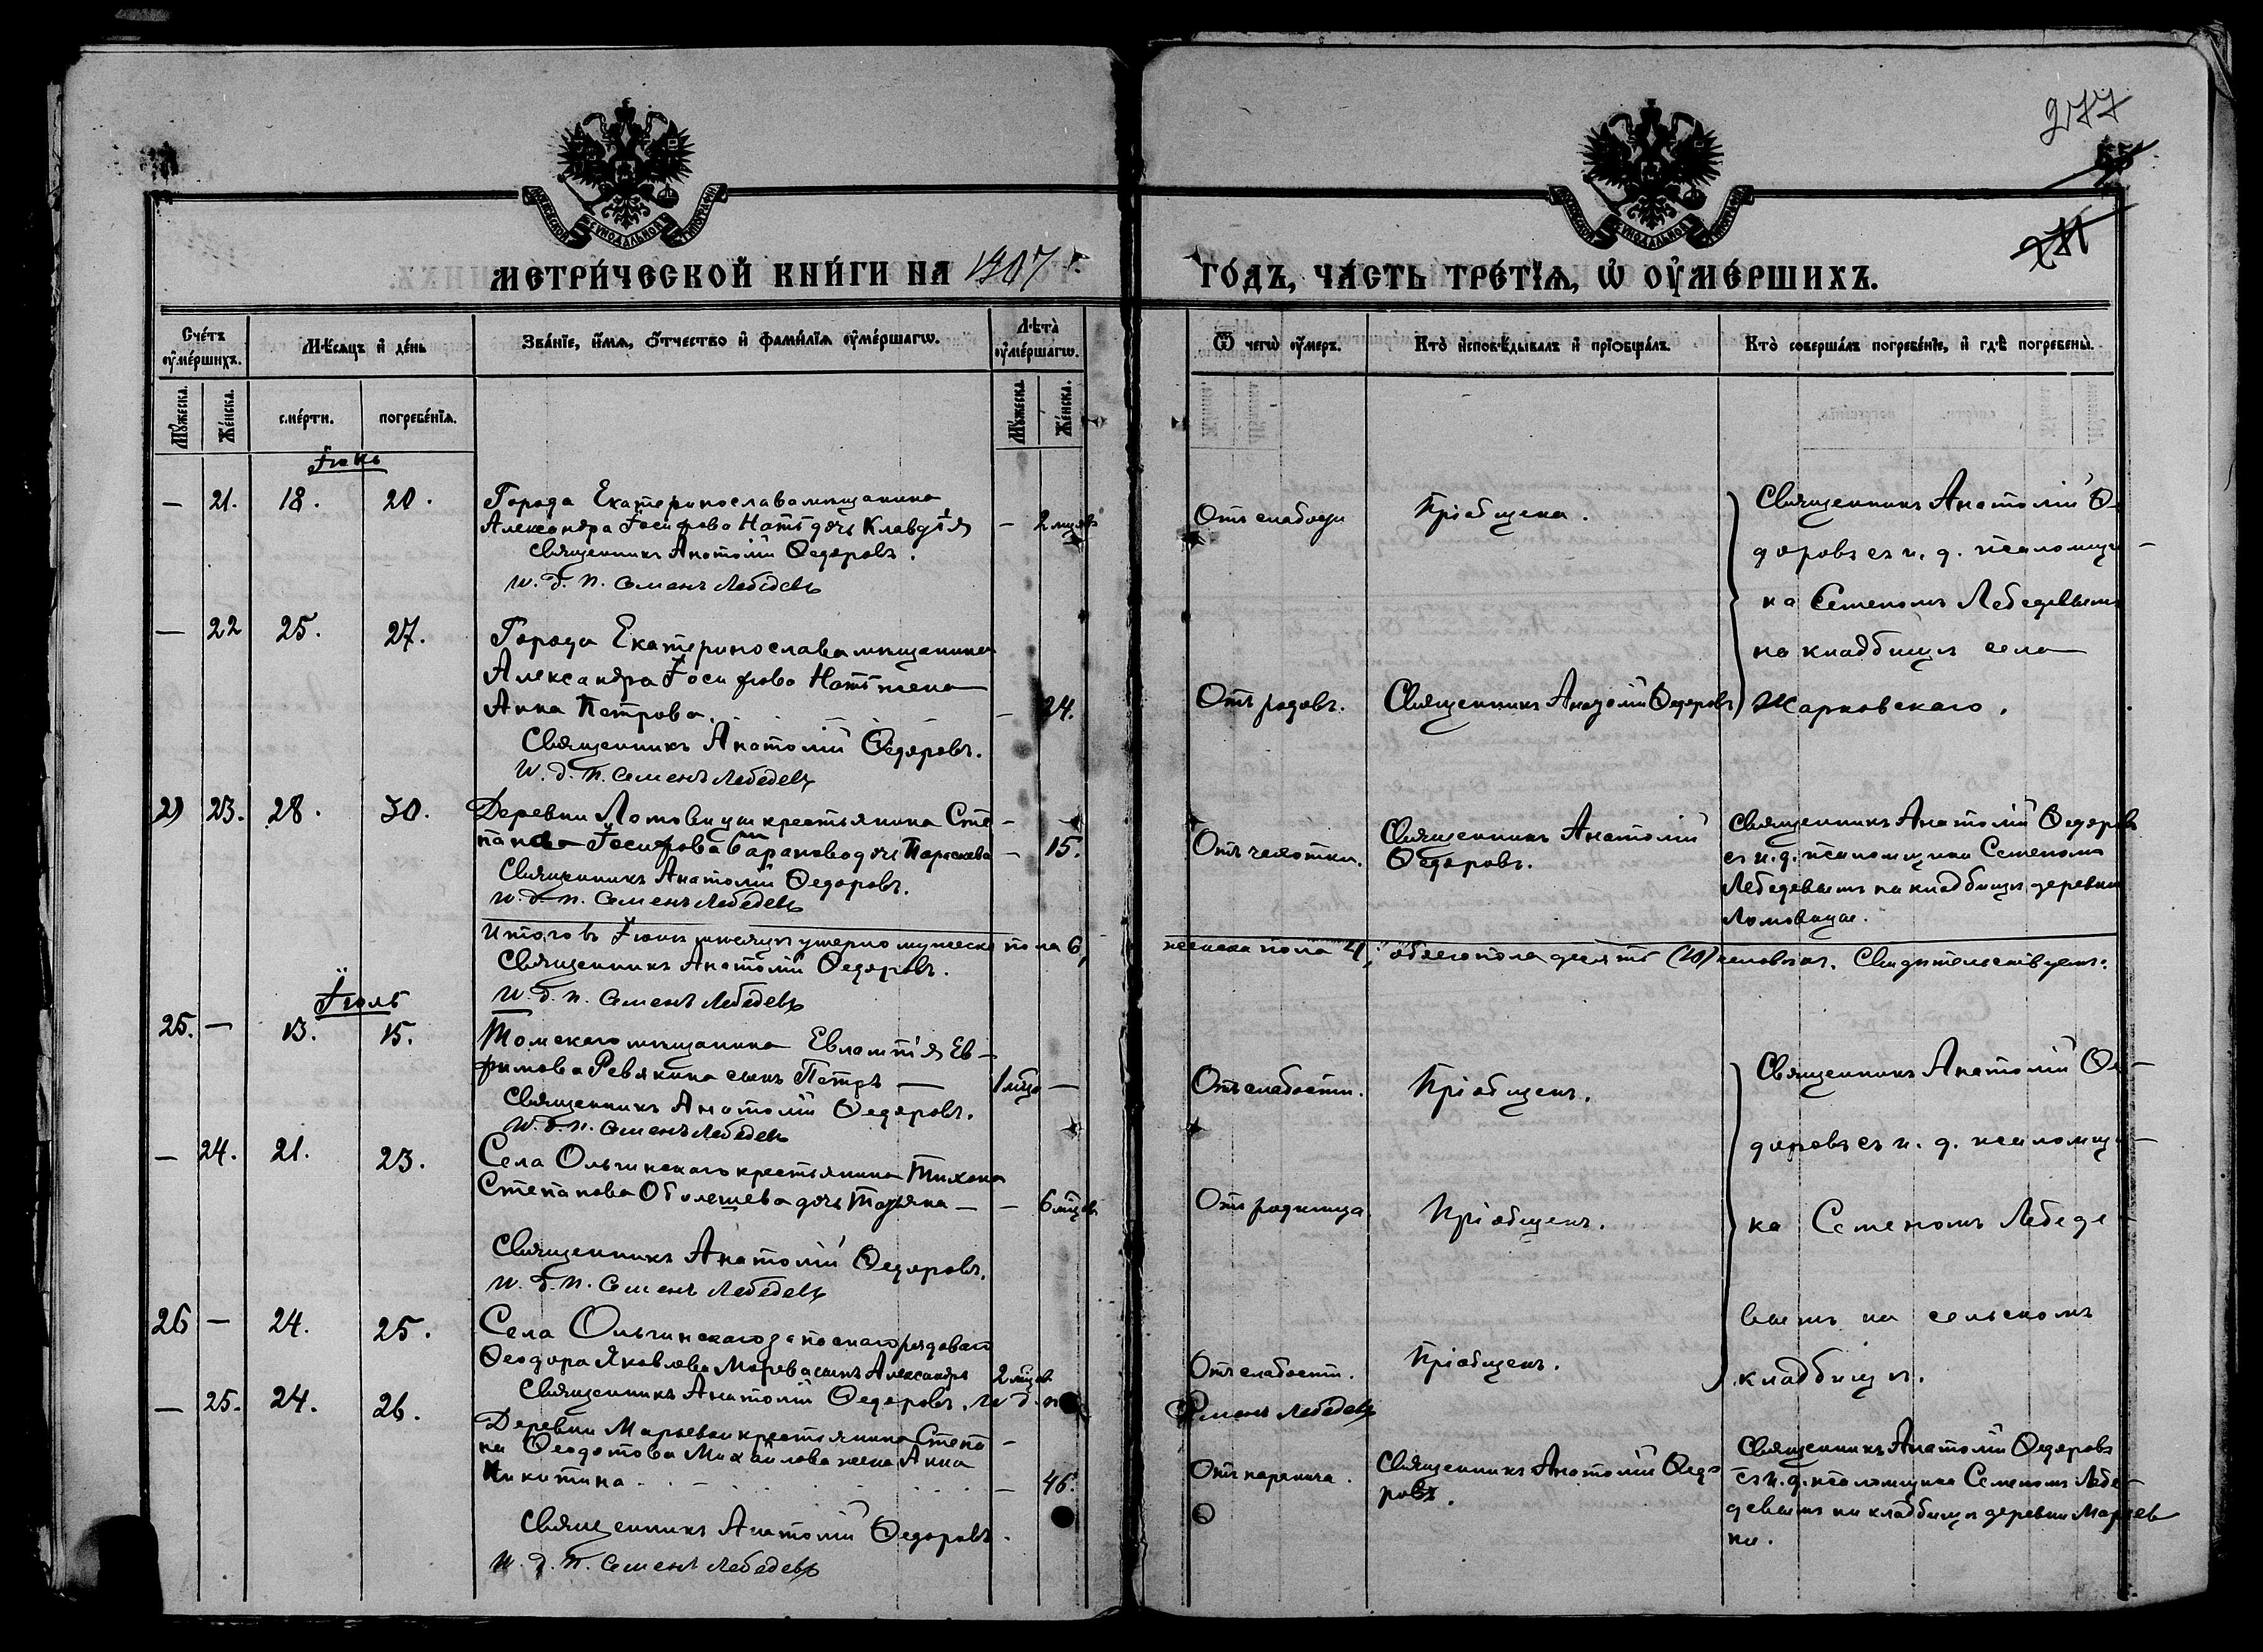 277
55
271
МОСКОВСКОЙ СѴНОДАЛЬНОЙ ТИПОГРАФІИ
МОСКОВСКОЙ СѴНОДАЛЬНОЙ ТИПОГРАФІИ
МЕТРИ́ЧЕСКОЙ КНИ́ГИ НА 1907 г.
ГО́ДЪ, ЧА́СТЬ ТРЕ́ТЇѦ, Ѡ҆ ОУ҆МЕ́РШИХЪ.
Сче́тъ оу҆ме́ршихъ.
Мѣ́сѧцъ и҆ де́нь
Зва́нїе, и҆́мѧ, ѻ҆́тчество и҆ фами́лїѧ оу҆ме́ршагѡ.
Лѣ́та̀ оу҆ме́ршагѡ.
Ѿ чегѡ̀ оу҆́меръ.
Кто̀ и҆сповѣ́дывалъ и҆ прїѡбща́лъ.
Кто̀ соверша́лъ погребе́нїе, и҆ гдѣ̀ погребены̀.
Мꙋ́жеска.
Же́нска.
сме́рти.
погребе́нїѧ.
Мꙋ́жеска.
Же́нска.
Іюнь
— 21. 18. 20.
Города Екатеринослава мѣщанина
Александра Іосифова дочь Клавдія — 2 мѣсяц.
Священникъ Анатолій Ѳедоровъ.
И. д. п. Семенъ Лебедевъ
Отъ слабости
Пріобщена.
Священникъ Анатолій Ѳе-
доровъ съ и. д. псаломщи-
ка Семеномъ Лебедевымъ
на кладбищѣ села
Жарковскаго.
— 22 25. 27.
Города Екатеринослава мѣщанина
Александра Іосифова жена
Анна Петрова. — 24.
Священникъ Анатолій Ѳедоровъ.
И. д. п. Семенъ Лебедевъ
Отъ родовъ.
Священникъ Анатолій Ѳедоровъ
23. 28. 30.
Деревни Ломовицы крестьянина Сте-
пана Іосифова Баранова дочь Параскева — 15.
Священникъ Анатолій Ѳедоровъ.
И. д. п. Семенъ Лебедевъ
Отъ чахотки.
Священникъ Анатолій
Ѳедоровъ.
Священникъ Анатолій Ѳедоровъ
съ и. д. псаломщика Семеномъ
Лебедевымъ на кладбищѣ деревни
Ломовицы.
Итого въ Іюнѣ мѣсяцѣ умерло мужеска пола 6, женска пола 4, обоего пола десять (10) человѣкъ. Свидѣтельствуемъ:
Священникъ Анатолій Ѳедоровъ.
И. д. п. Семенъ Лебедевъ
Іюль
25. — 13. 15.
Томскаго мѣщанина Евлампія Ев-
фимова Ревякина сынъ Петръ — 1 мѣс. —
Священникъ Анатолій Ѳедоровъ.
И. д. п. Семенъ Лебедевъ
Отъ слабости.
Пріобщенъ.
Священникъ Анатолій Ѳе-
доровъ съ и. д. псаломщи-
ка Семеномъ Лебеде-
вымъ на сельскомъ
кладбищѣ.
— 24. 21. 23.
Села Ольгинскаго крестьянина Тихона
Степанова дочь Татьяна — — 6 мѣсяц.
Священникъ Анатолій Ѳедоровъ.
И. д. п. Семенъ Лебедевъ
Отъ родимца.
Пріобщенъ.
26 — 24. 25.
Села Ольгинскаго запаснаго рядоваго
Ѳеодора Яковлева сынъ Александръ 2 мѣсяц.
Священникъ Анатолій Ѳедоровъ. И. д. п. Семенъ Лебедевъ
Отъ слабости.
Пріобщенъ.
— 25. 24. 26.
Деревни Марьевки крестьянина Степа-
на Ѳеодотова Михайлова жена Анна
Никитина. — 46.
Священникъ Анатолій Ѳедоровъ.
И. д. п. Семенъ Лебедевъ
Отъ паралича.
Священникъ Анатолій Ѳедо-
ровъ.
Священникъ Анатолій Ѳедоровъ
съ и. д. псаломщика Семеномъ Лебе-
девымъ на кладбищѣ деревни Марьев-
ки.